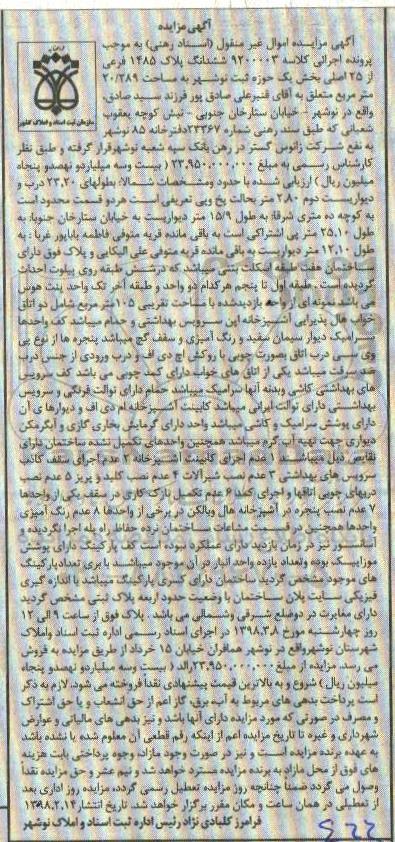 آگهی مزایده
آگهی مزایده اموال غیر منقول (اسناد رهنی) به موجب
پرونده اجرائی کلاسه ۹۲۰۰۰۰۳ ششدانگ پلاک ۱۴۸۵ فرعی
از ۲۵ اصلی بخش یک حوزه ثبت نوشهر به مساحت ۲۰/۲۸۹
متر مربع متعلق به آقای قنبرعلی صادق پور فرزند سید صادق،
واقع در نوشهر - خیابان ستارخان جنوبی - نبش کوچه یعقوب
شعبانی که طبق سند رهنی شماره ۲۳۳۶۷ دفترخانه ۸۵ نوشهر
سازمان ثبت اسناد و املاک کشور
به نفع شرکت زانوس گستر در رهن بانک سپه شعبه نوشهر قرار گرفته و طبق نظر
کارشناس رسمی به مبلغ ۲۳,۹۵۰,۰۰۰,۰۰۰ ( بیست وسه میلیاردو نهصدو پنجاه
میلیون ریال ) ارزیابی شده با حدود ومشخصات شمالا: بطولهای ۲۳,۲۰ درب و
دیواریست دوم ۲,۸۰ متر بحالت پخ وپی تعریفی است هردو قسمت محدود است
به کوچه ده متری شرقا: به طول ۱۵/۹ متر دیواریست به خیابان ستارخان جنوبا: به
طول ۲۵,۱۰ متر پی اشتراکی است به باقی مانده قریه متوفی فاطمه باباپور غربا : به
طول ۱۲,۱۰ متر دیواریست به باقی مانده قریه متوفی علی الیکایی و پلاک فوق دارای
ساختمان هفت طبقه اسکلت بتنی میباشد که درشش طبقه روی پیلوت احداث
گردیده است . طبقه اول تا پنجم هرکدام دو واحد و طبقه آخر تک واحد پنت هوس
می باشد نمونه ای از واحد بازدیدشده با مساحت تقریبی ۱۰۵ متر مربع شامل دو اتاق
خواب هال پذیرایی آشپزخانه اپن سرویس بهداشتی و حمام میباشد کف واحدها
سرامیک دیوار سیمان سفید و رنگ آمیزی و سقف گچ میباشد پنجره ها از نوع یو پی
وی سی درب اتاق بصورت چوبی با روکش اچ دی اف و درب ورودی از جنس درب
ضد سرقت میباشد یکی از اتاق های خواب دارای کمد چوبی می باشد کف سرویس
های بهداشتی کاشی وبدنه آنها سرامیک میباشد حمام دارای توالت فرنگی و سرویس
بهداشتی دارای توالت ایرانی میباشد کابینت آشپزخانه ام دی اف و دیوارها ی آن
دارای پوشش سرامیک و کاشی میباشد واحد دارای گرمایش بخاری گازی و آبگرمکن
دیواری جهت تهیه آب گرم میباشد همچنین واحدهای تکمیل نشده ساختمان دارای
نقایص ذیل میباشد ۱ عدم اجرای کابینت آشپزخانه ۲ عدم اجرای سقف کاذب
سرویس های بهداشتی ۳ عدم نصب شیرآلات ۴ عدم نصب کلید و پریز ۵ عدم نصب
دربهای چوبی اتاقها و اجرای کمد ۶ عدم تکمیل نازک کاری در سقف یکی از واحدها
۷ عدم نصب پنجره در آشپزخانه هال وبالکن در برخی از واحدها ۸ عدم رنگ آمیزی
واحدها همچنین در قسمت مشاعات ساختمان نرده حفاظ راه پله اجرا نگردیده و
آسانسور نیز در زمان بازدید دارای عملکرد نبوده است کف پارکینگ دارای پوشش
موزاییک بوده وتعداد یازده واحد انبار در آن موجود میباشد با بری تعدادپارکینگ
های موجود مشخص گردید ساختمان دارای کسری پارکینگ میباشد با اندازه گیری
فیزیکی سایت پلان ساختمان با وضعیت حدود اربعه پلاک ثبتی مشخص گردید
دارای مغایرت در دوضلع شرقی وشمالی می باشد. پلاک فوق از ساعت ۹ الی ۱۲
روز چهارشنبه مورخ ۱۳۹۸,۳,۸ در اجرای اسناد رسمی اداره ثبت اسناد واملاک
شهرستان نوشهرواقع در نوشهر همافران خیابان ۱۵ خرداد از طریق مزایده به فروش
می رسد. مزایده از مبلغ ۲۳,۹۵۰,۰۰۰,۰۰۰ ( بیست وسه میلیاردو نهصدو پنجاه
میلیون ریال ) شروع و به بالاترین قیمت پیشنهادی نقدا فروخته می شود. لازم به ذکر
است پرداخت بدهی های مربوط به آب، برق، گاز اعم از حق انشعاب و یا حق اشتراک
و مصرف در صورتی که مورد مزایده دارای آنها باشد و نیز بدهی های مالیاتی و عوارض
شهرداری و غیره تا تاریخ مزایده اعم از اینکه رقم قطعی آن معلوم شده یا نشده باشد
به عهده برنده مزایده است و نیز در صورت وجود مازاد، وجوه پرداختی بابت هزینه
های فوق از محل مازاد به برنده مزایده مسترد خواهد شد و نیم عشر و حق مزایده نقدا
وصول می گردد ضمنا چنانچه روز مزایده تعطیل رسمی گردد، مزایده روز اداری بعد
از تعطیلی در همان ساعت و مکان مقرر برگزار خواهد شد. تاریخ انتشار ۱۳۹۸,۲,۱۴
فرامرز کلبادی نژاد رئیس اداره ثبت اسناد و املاک نوشهر